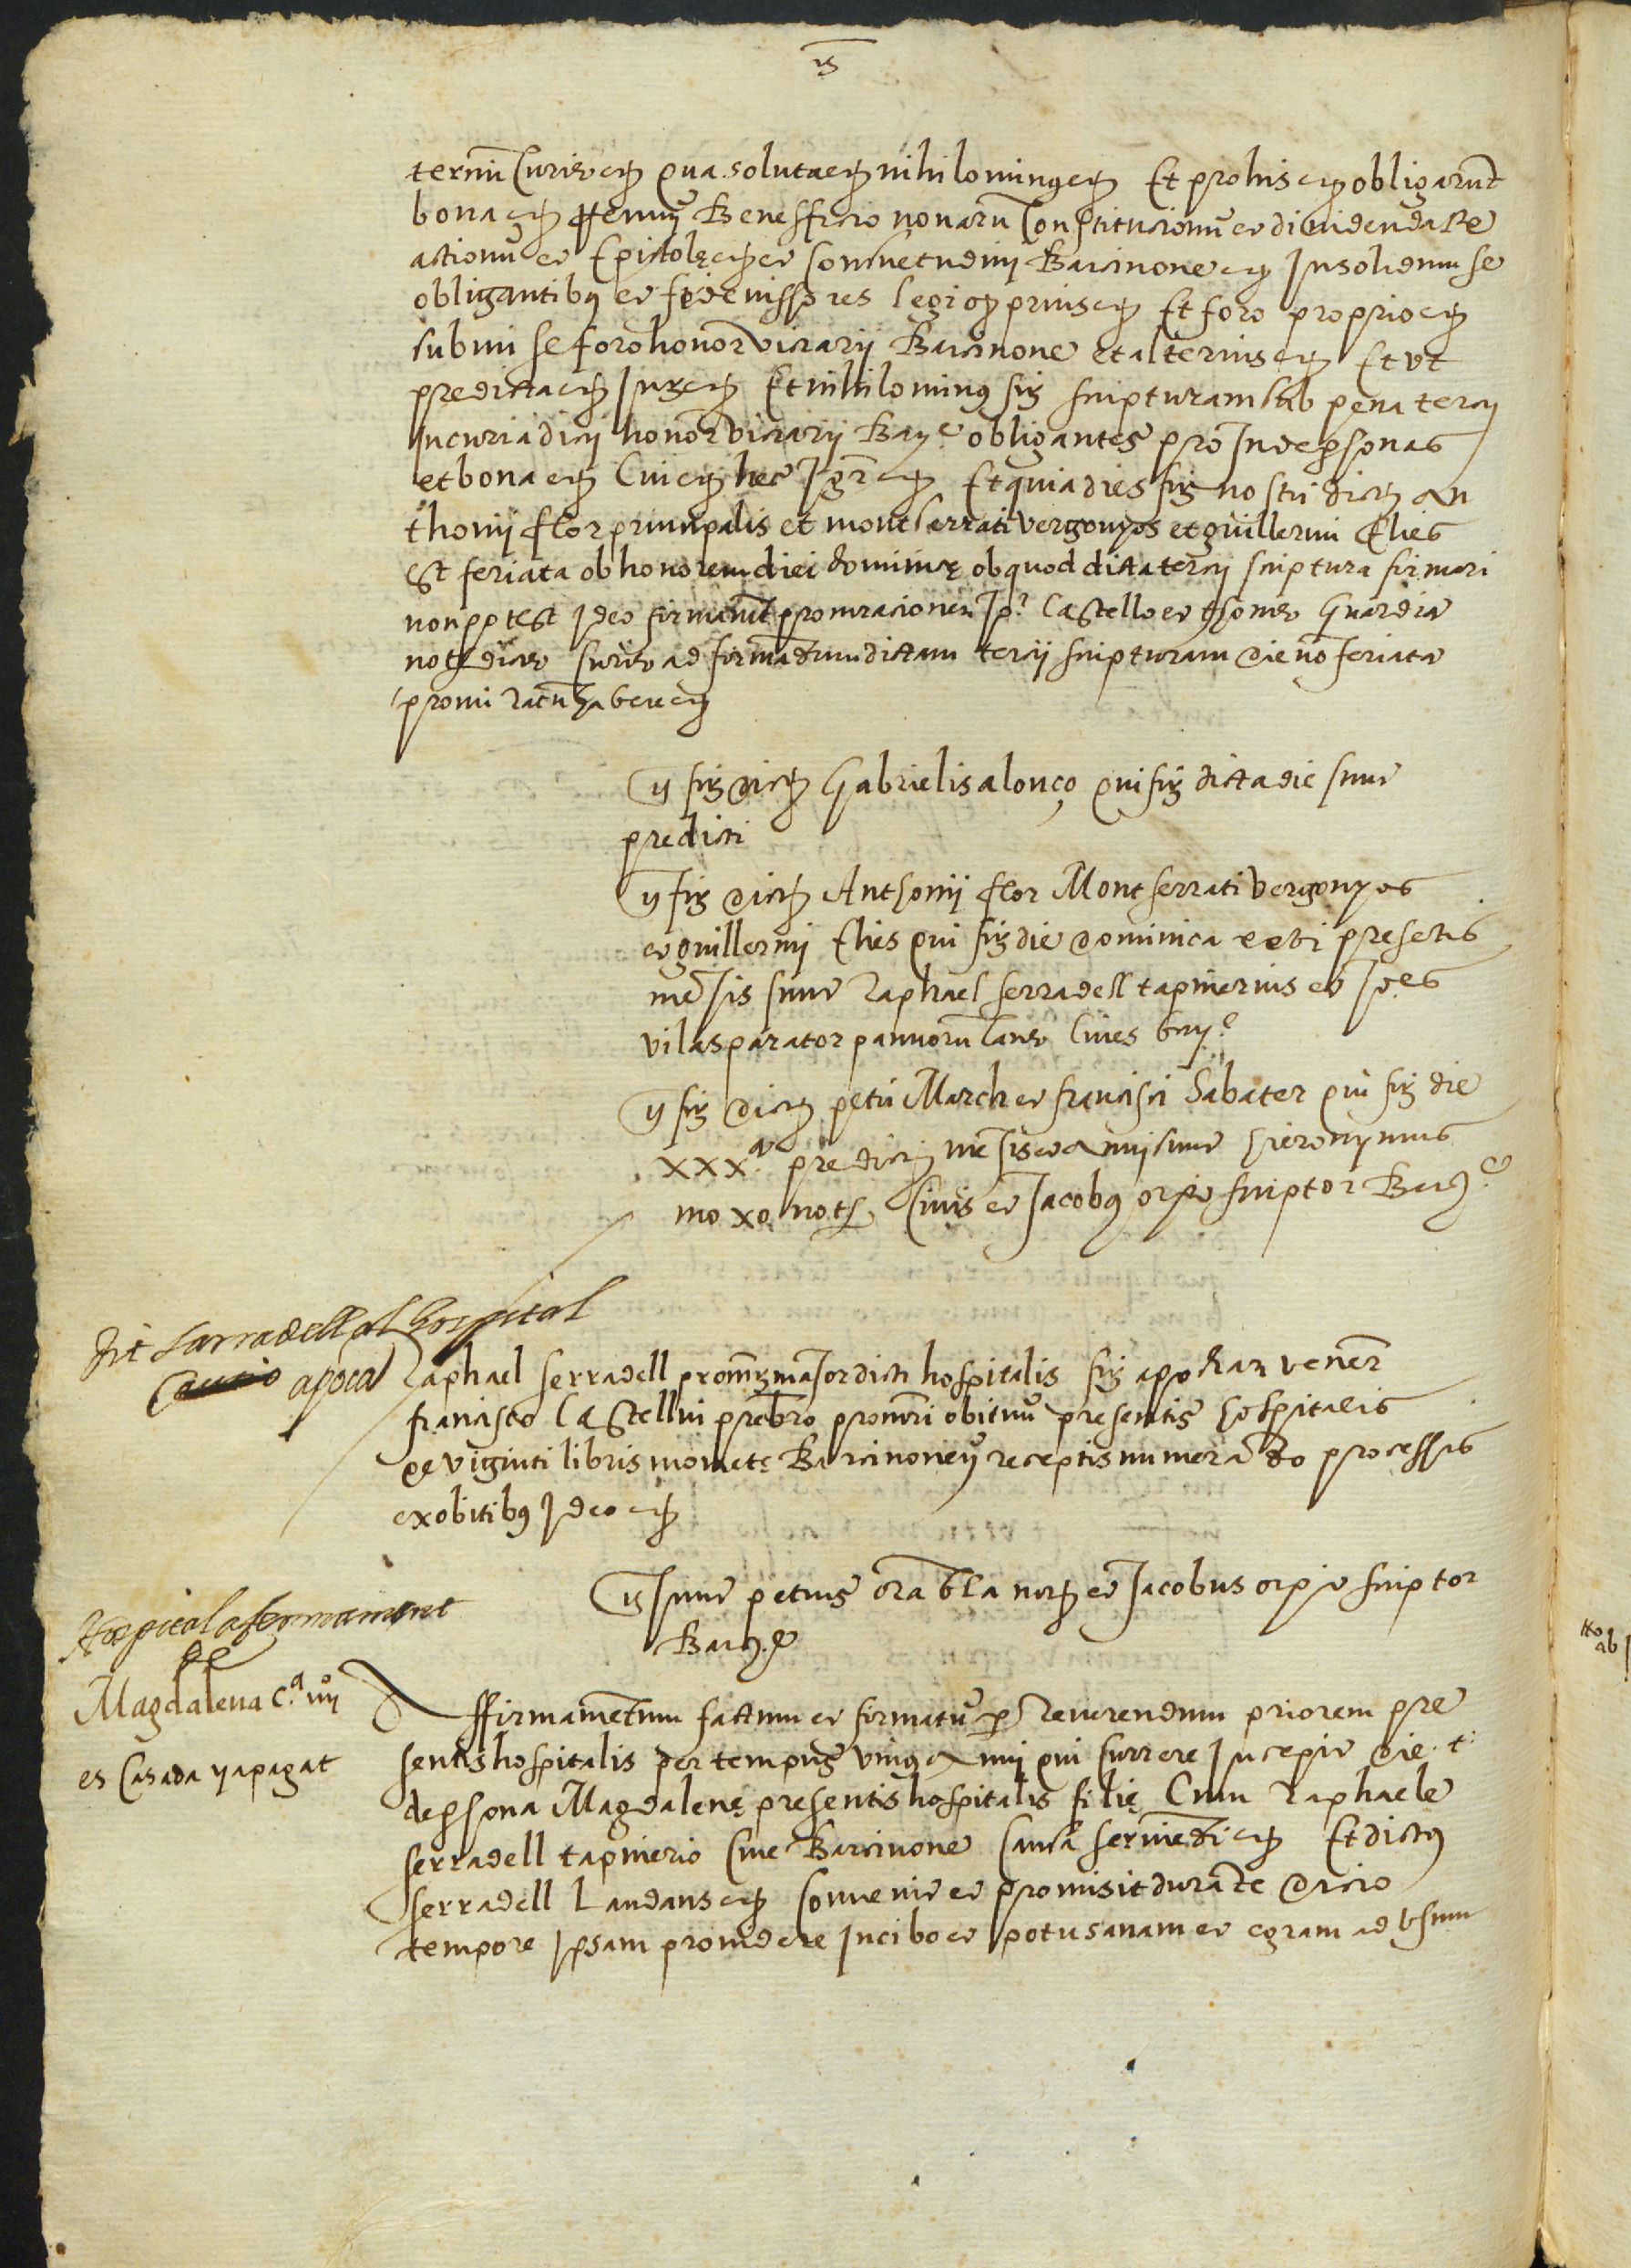 termini Curie etc Qua soluta etc nihilominus etc Et pro his etc obligarunt
bona etc renun Benefficio novarum Constitucionum et dividendarum
actionum et Epistole etc et Consuetudini Barcinone etc Insolidum se
obligantibus et fideiussores legi q prius etc Et foro proprio etc
submi se foro honor Vicarii Barcinone et alterius etc Et ut
predicta etc Iur etc Et nihilominus fir scripturam sub pena tercii
In curia dicti honor Vicarii Bar.e obligantes pro Inde personas
et bona etc Cui etc hec Igr etc Et quia dies fir nostri dictorum An
thonii flor principalis et montserrati vergonyos et guillermi Elies
est feriata ob honorem diei dominice ob quod dicta tercii scriptura firmari
non potest Ideo firmarunt procuracionem Jo. Castello et Thome Guardia
not dicte Curie ad firmandum dictam tercii scripturam die no feriata
promi ratum habere etc
Ts fir dict Gabrielis alonço qui fir dicta die sunt
predicti
Ts fir dict Anthonii flor Montserrati vergonyos
et guillermi Elies qui fir die dominica presentis
mensis sunt Raphael serradell tapinerius et Joes
vilas parator pannorum lane Cives bar.e
Ts fir dict petri March et francisci Sabater qui fir die
xxx.a predict mensis et anni sunt hieronymus
moxo not Civis et Jacobus orpi scriptor Bar.e
Sarradell al hospital
apoca
Raphael serradell procur maior dicti hospitalis fir apocham vener
francisco Castellvi presbro procuri obituum presentis hospitalis
de viginti libris monete Barcinonen receptis numerando processis
ex obitibus Ideo etc
Ts sunt petrus rabla not et Jacobus orpi scriptor
Bar.e
Hospital afermament
de
Magdalena C.a
es Casada y apagat
Affirmamentum factum et firmatum per Reverendum priorem pre
sentis hospitalis per tempus unius anni qui currere Incepit die
de persona Magdalene presentis hospitalis filie Cum Raphaele
serradell tapinerio Cive Barcinone Causa serviendi etc Et dictus
serradell Laudans etc Convenit et promisit durante dicto
tempore Ipsam providere In cibo et potu sanam et egram ad usum